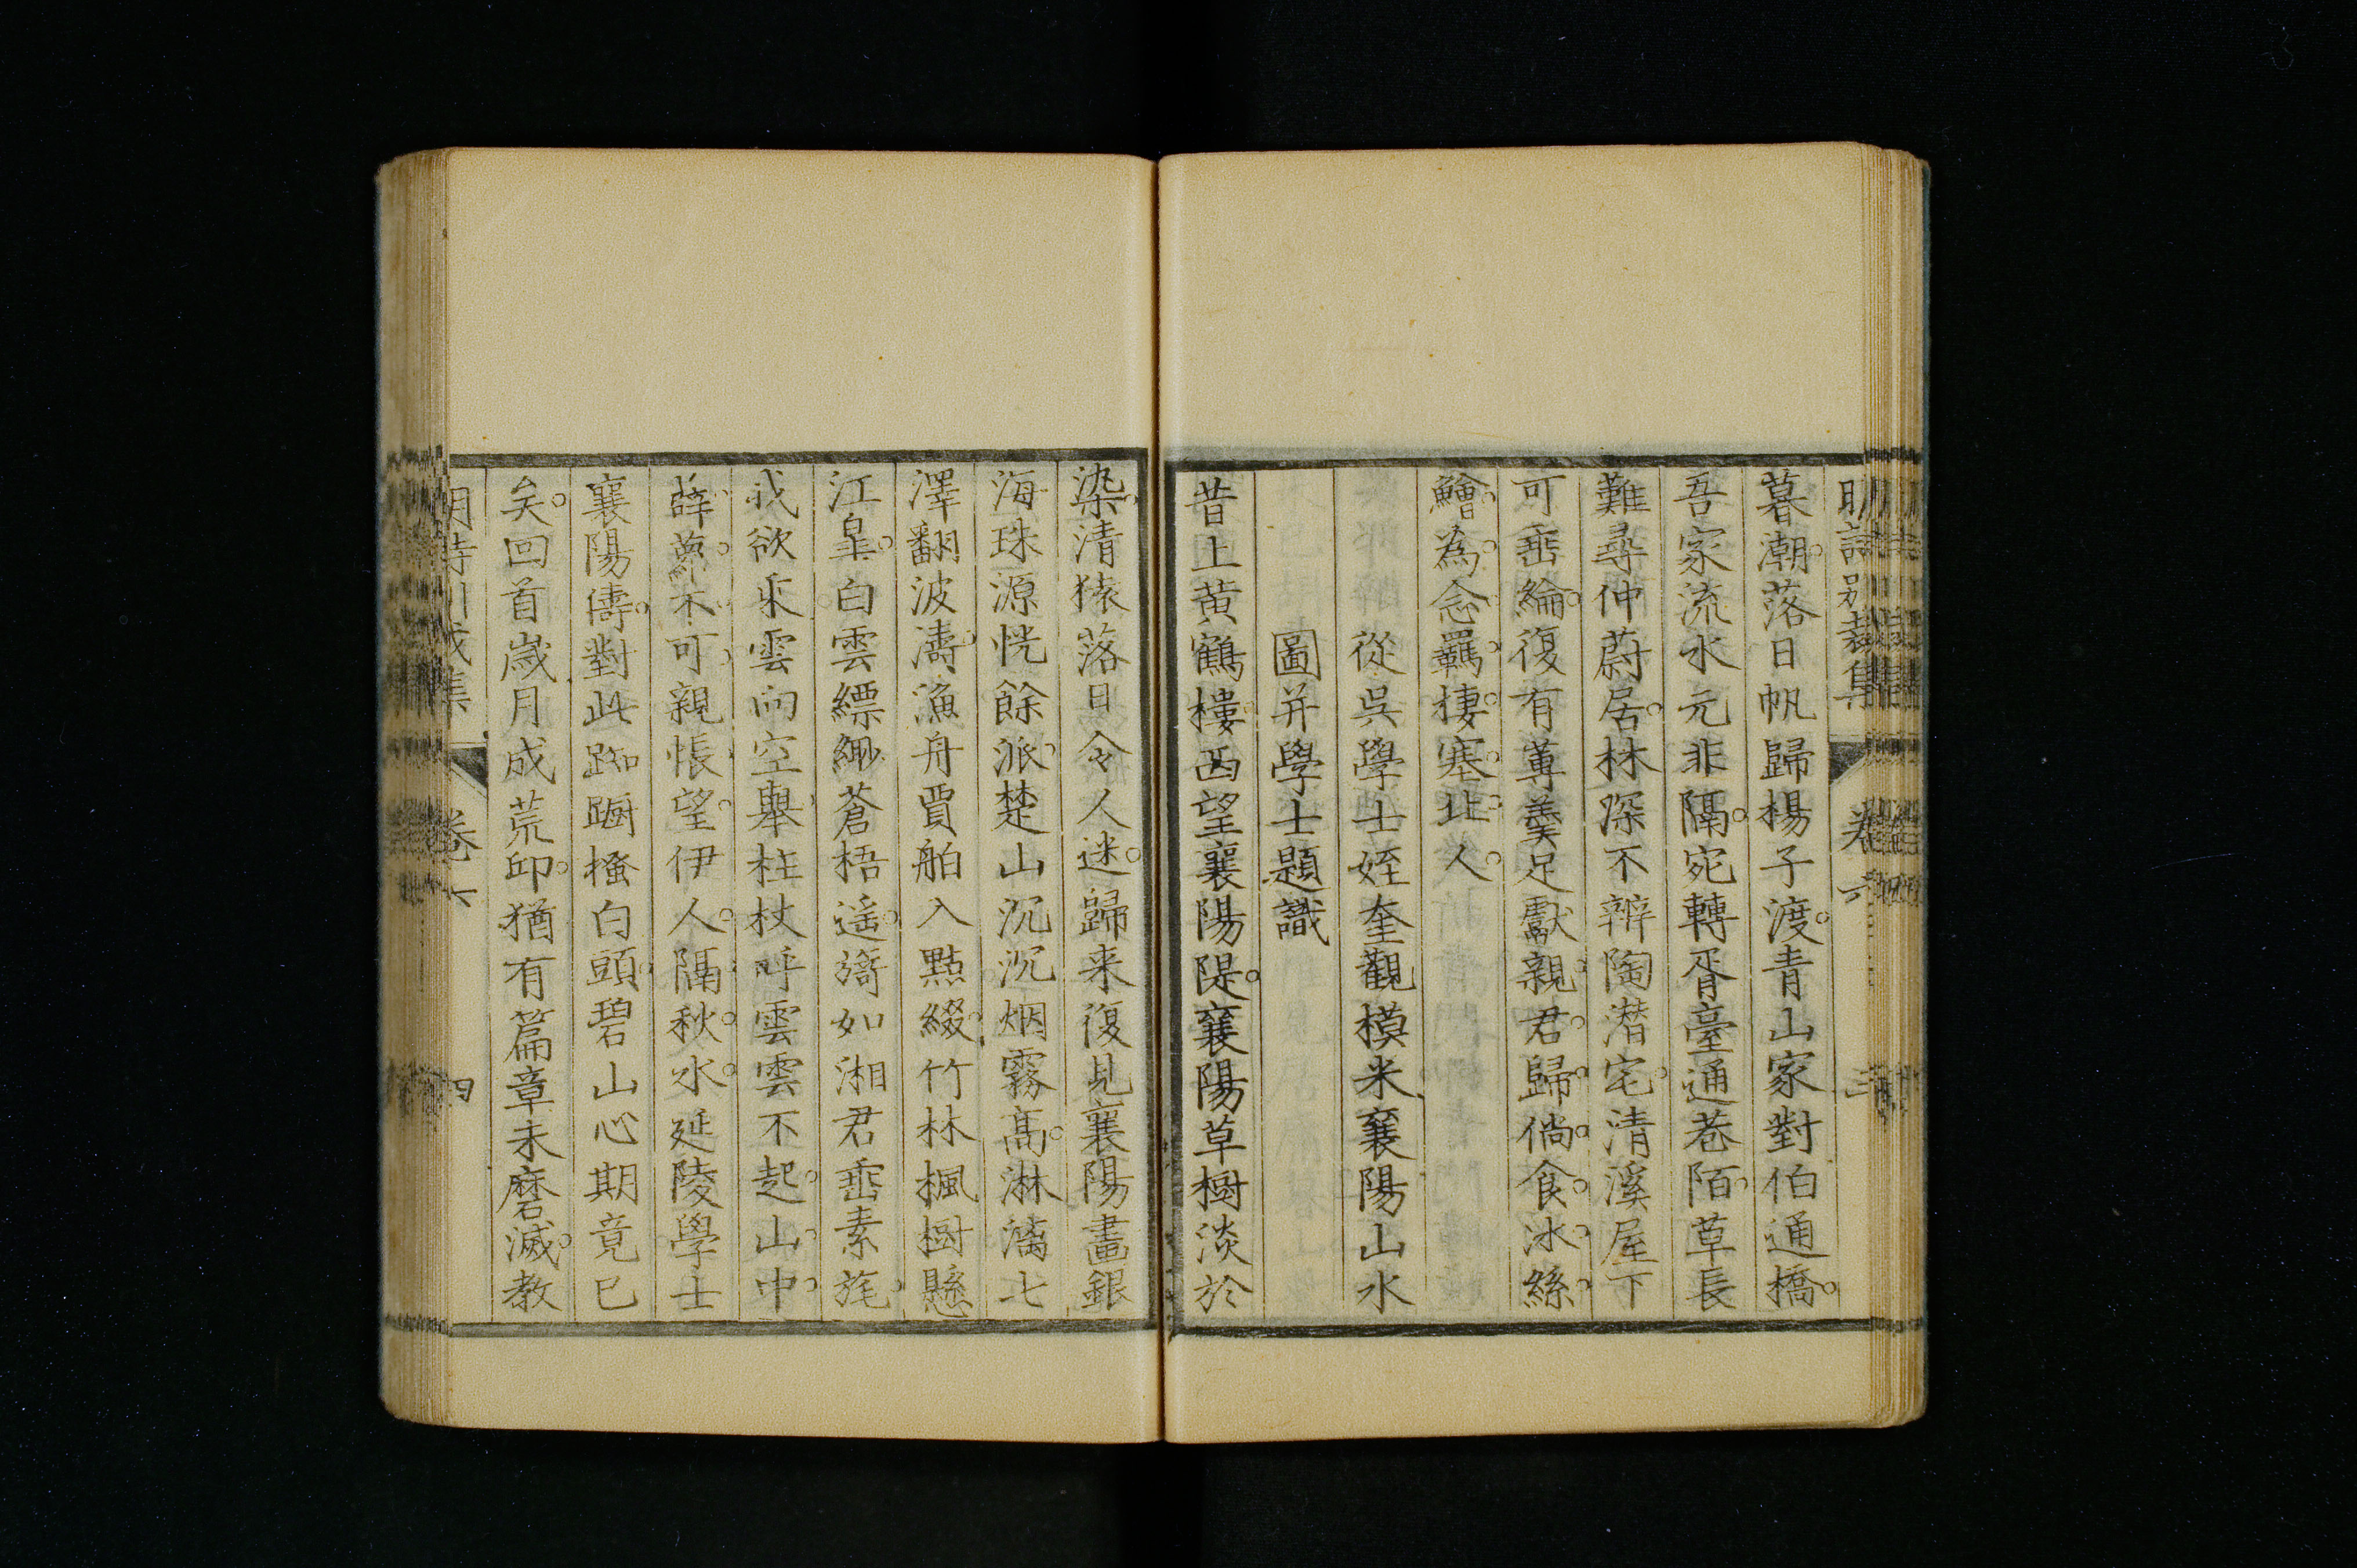 明詩別裁集 卷六 三
暮潮落日帆歸楊子渡青山家對伯通橋
吾家流水元非隔宛轉胥臺通巷陌草長
難尋仲蔚居林深不辨陶潜宅清溪屋下
可垂綸復有蓴羹足獻親君歸倘食冰絲
鱠為念羈棲塞北人
從吳學士姪奎觀模米襄陽山水
圖并學士題識
昔上黄鶴樓西望襄陽隄襄陽草樹淡於
染清猿落日令人迷歸来復見襄陽畫銀
海珠源恍餘派楚山沉沉烟霧高淋漓七
澤翻波濤漁舟賈舶入點綴竹林楓樹懸
江皐白雲縹緲蒼梧遥旖如湘君垂素旄
我欲乐雲向空舉柱杖呼雲雲不起山中
薜蘿不可親悵望伊人隔秋水延陵學士
襄陽儔對此踟蹰搔白頭碧山心期竟已
矣回首歲月成荒邱猶有篇章未磨滅教
明詩別裁集 卷六 四